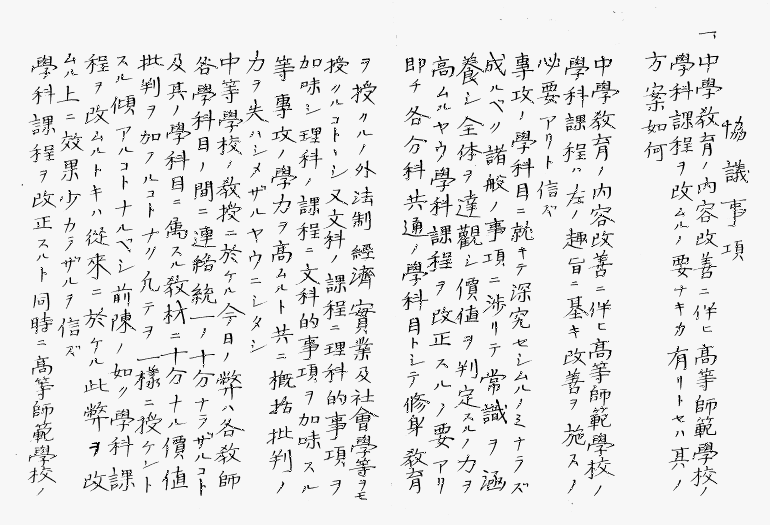 協議事項
「中學教育ノ內容改善ニ伴ヒ高等師範學校ノ
學科課程ヲ改ムルノ要ナキカ有リトセハ其ノ
方案如何
中學教育ノ內容改善ニ伴ヒ高等師範學校ノ
學科課程ハ左ノ趣旨ニ基キ改善ヲ施スノ
必要アリト信ズ
專攻ノ學科目ニ就キテ深究セシムルノミナラズ
成ルベク諸般ノ事項ニ涉リテ常識ヲ涵
養シ全体ヲ達觀シ價值ヲ判定スルノ力ヲ
高ムルヤウ學科課程ヲ改正スルノ要アリ
卽チ各分科共通ノ學科目トシテ修身教育
ヲ授クルノ外法制經濟實業及社會學等ヲモ
授クルコトヽシ又文科ノ課程ニ理科的事項ヲ
加味シ理科ノ課程ニ文科的事項ヲ加味スル
等專攻ノ學力ヲ高ムルト共ニ概括批判ノ
力ヲ失ハシメザルヤウニシタシ
中等學校ノ教授ニ於ケル今日ノ弊ハ各教師
各學科目ノ間ニ連絡統一ノ十分ナラザルコト
及其ノ學科目ニ属スル教材ニ十分ナル價值
批判ヲ加フルコトナク凡テヲ一樣ニ授ケント
スル傾アルコトナルベシ前陳ノ如ク學科課
程ヲ改ムルトキハ從來ニ於ケル此弊ヲ改
ムル上ニ效果少カラザルヲ信ズ
學科課程ヲ改正スルト同時ニ高等師範學校ノ